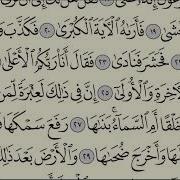 فَأَرَىٰهُ ٱلْءَايَةَ ٱلْكُبْرَىٰ ٢٠ فَكَذَّبَ
فَحَشَرَ فَنَادَىٰ ٢٣ فَقَالَ أَنَا۠ رَبُّكُمُ ٱلْأَعْلَىٰ
وَٱلْأُولَىٰٓ ٢٥ إِنَّ فِى ذَٰلِكَ لَعِبْرَةً لِّمَن
خَلْقًا أَمِ ٱلسَّمَآءُ ۚ بَنَىٰهَا ٢٧ رَفَعَ سَمْكَهَا
وَأَخْرَجَ ضُحَىٰهَا ٢٩ وَٱلْأَرْضَ بَعْدَ ذَٰلِكَ